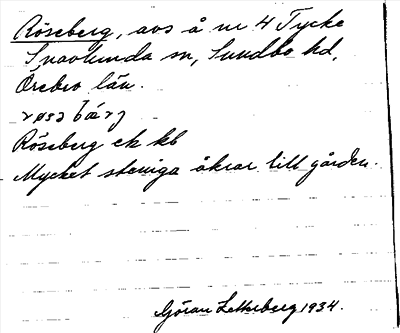 Röseberg, avs å nr 4 Tycke
Snavlunda sn, Sundbo hd,
Örebro län.
røsəbærj
Röseberg ek kb
Mycket steniga åkrar till gården.
Göran Zetterberg 1934.